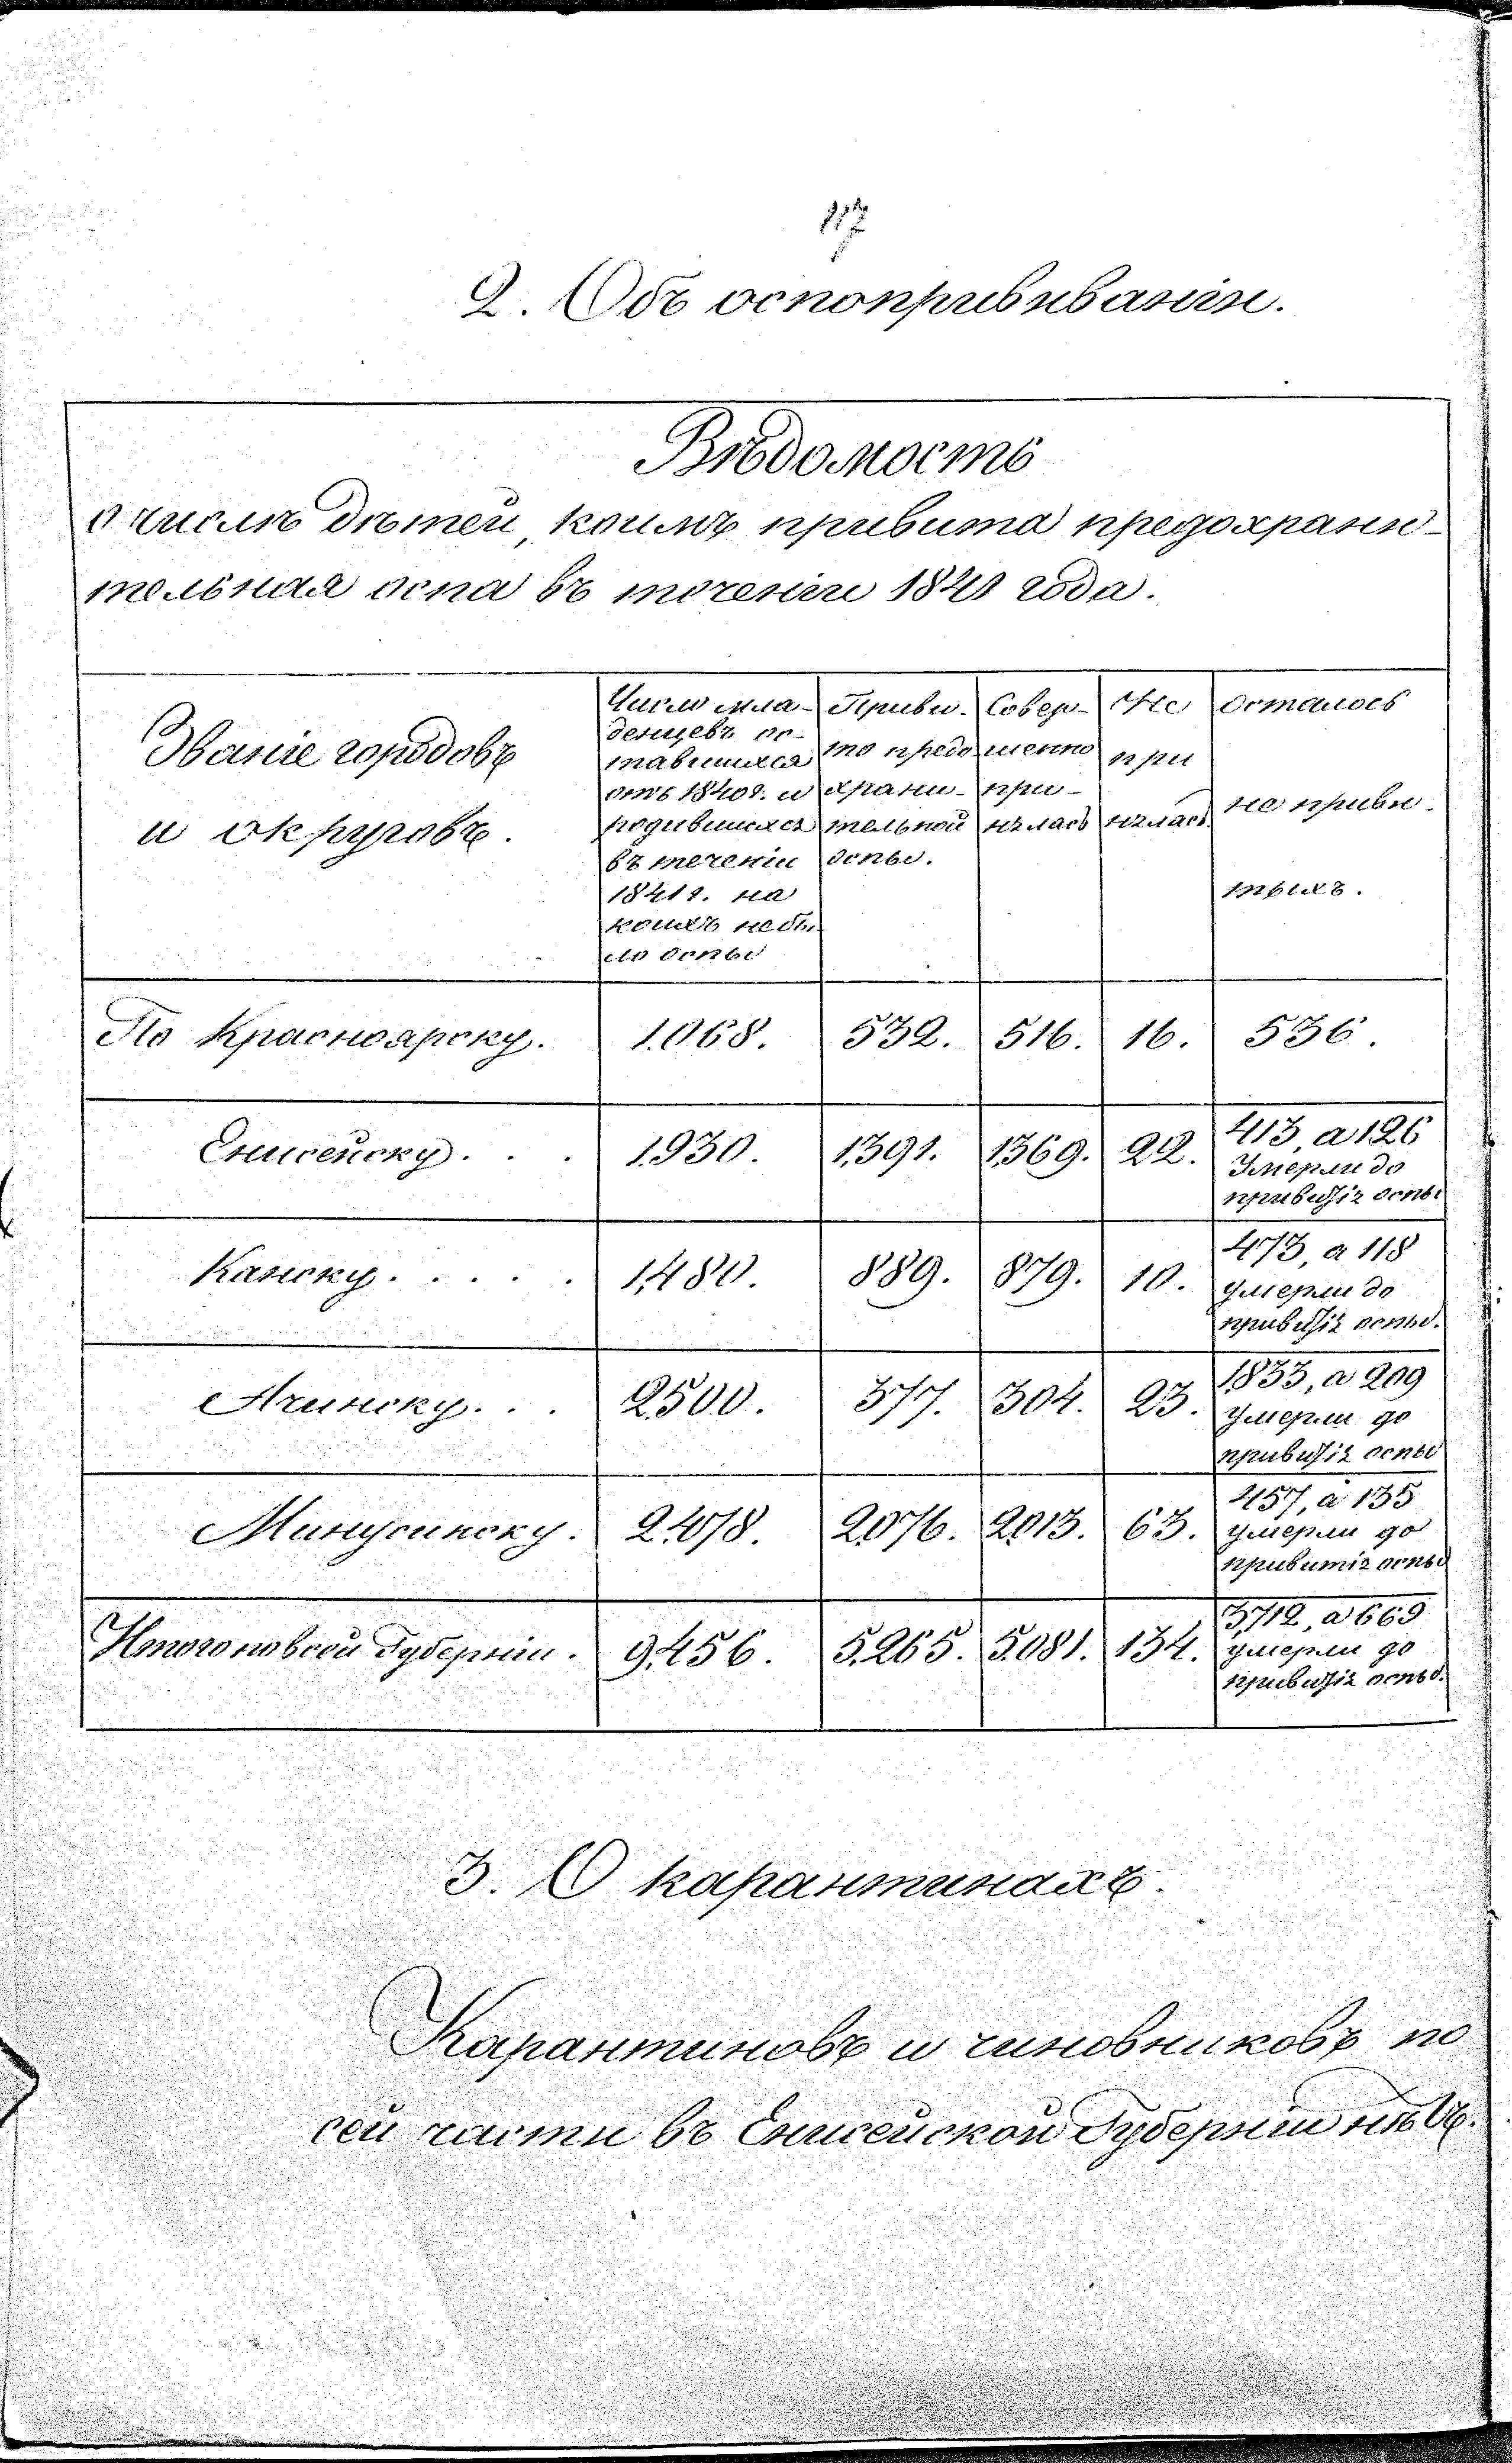 117
2. Объ оспопрививаніи.
Вѣдомость
о числѣ дѣтей, коимъ привита предохрани-
тельная оспа въ теченіи 1841 года.
Званіе городовъ
и округовъ.
Число мла-
денцевъ ос-
тавшихся
отъ 1840 г. и
родившихся
въ теченіи
1841 г. на
коихъ не бы
ло оспы
Приви-
то предо
храни-
тельной
оспы.
Совер-
шенно
при-
нялась
Не
при
нялась.
Осталось
не приви-
тыхъ.
По Красноярску. 1.068. 532. 516. 16. 536.
Енисейску. . . 1.930. 1,391. 1,369. 22. 413, а 126
умерли до
привитія оспы
Канску. . . . . 1,480. 889. 879. 10. 473, а 118
умерли до
привитія оспы.
Ачинску. . . 2.500. 377. 304. 23. 1,833, а 209
умерли до
привитія оспы
Минусинску. 2.478. 2,076. 2,013. 63. 457, а 135
умерли до
привитія оспы
Итого по всей Губерніи. 9,456. 5,265. 5.081. 134. 3,712, а 669
умерли до
привитія оспы.
3. О карантинахъ.
Карантиновъ и чиновниковъ по
сей части въ Енисейской Губерніи нѣтъ.